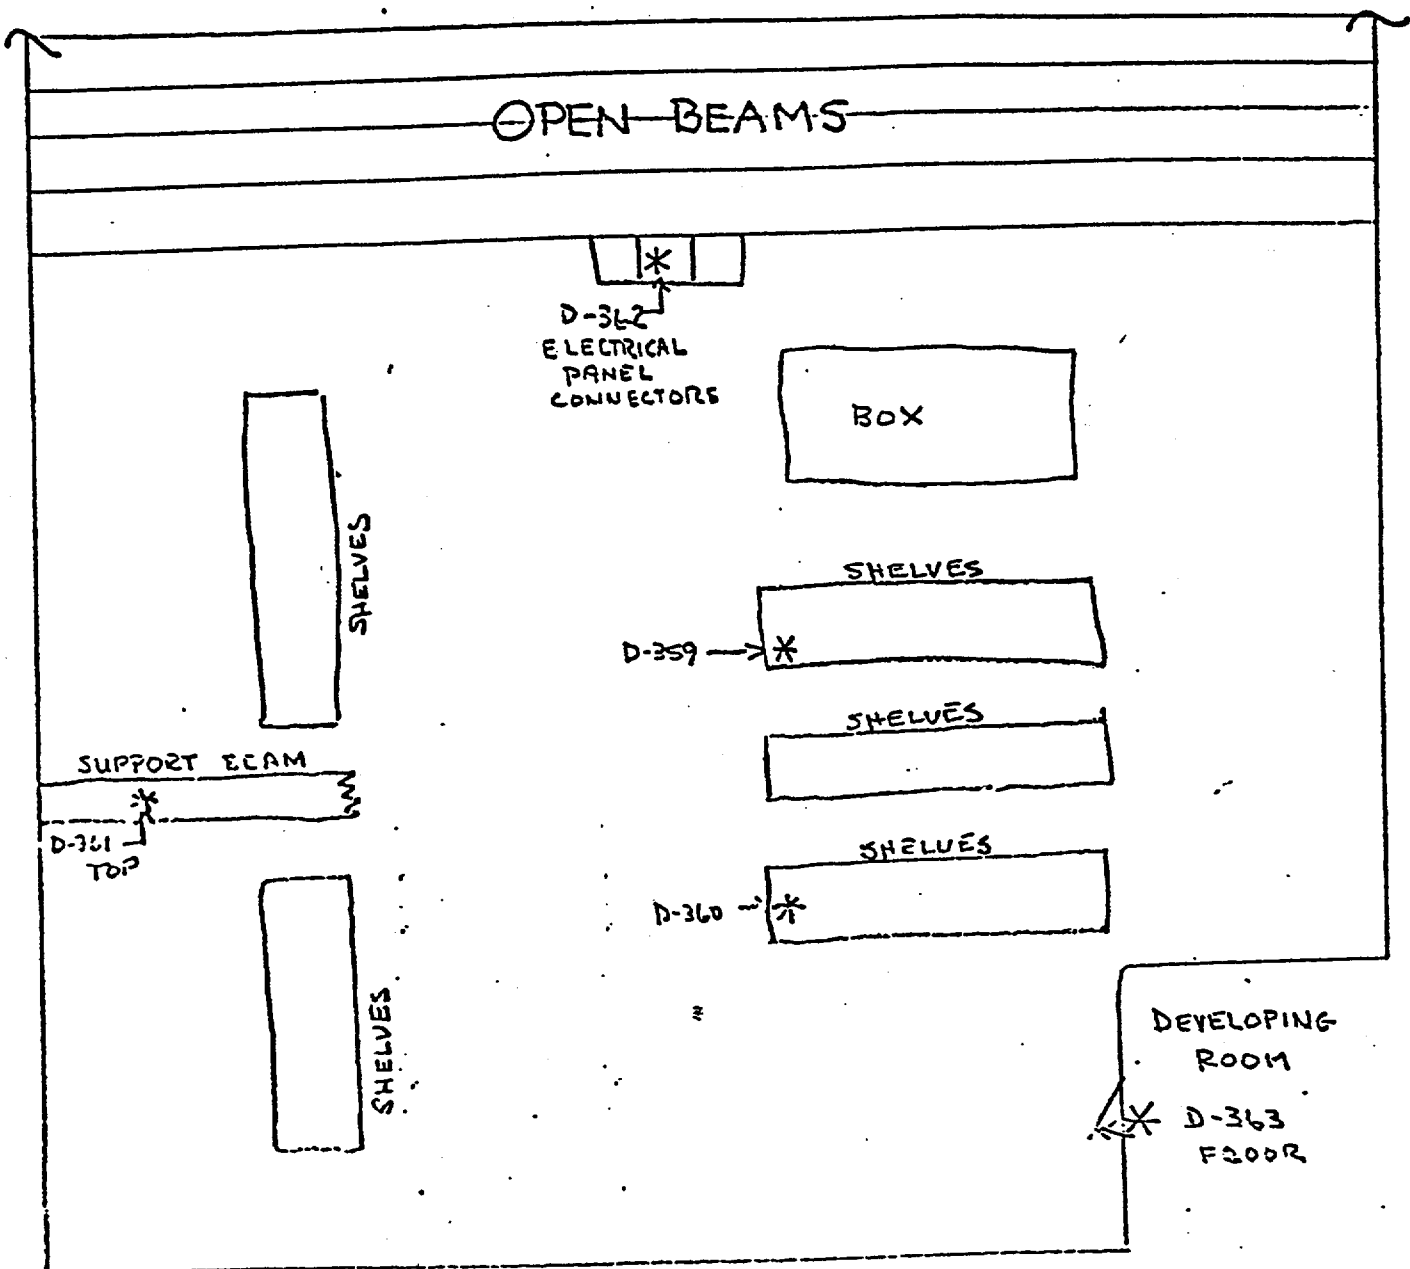 OPEN BEAMS
D-362
ELECTRICAL
PANEL
CONNECTORS
BOX
SHELVES
SHELVES
D-359
SHELVES
SUPPORT BEAM
D-361
TOP
SHELVES
D-360
SHELVES
DEVELOPING
ROOM
D-363
FLOOR